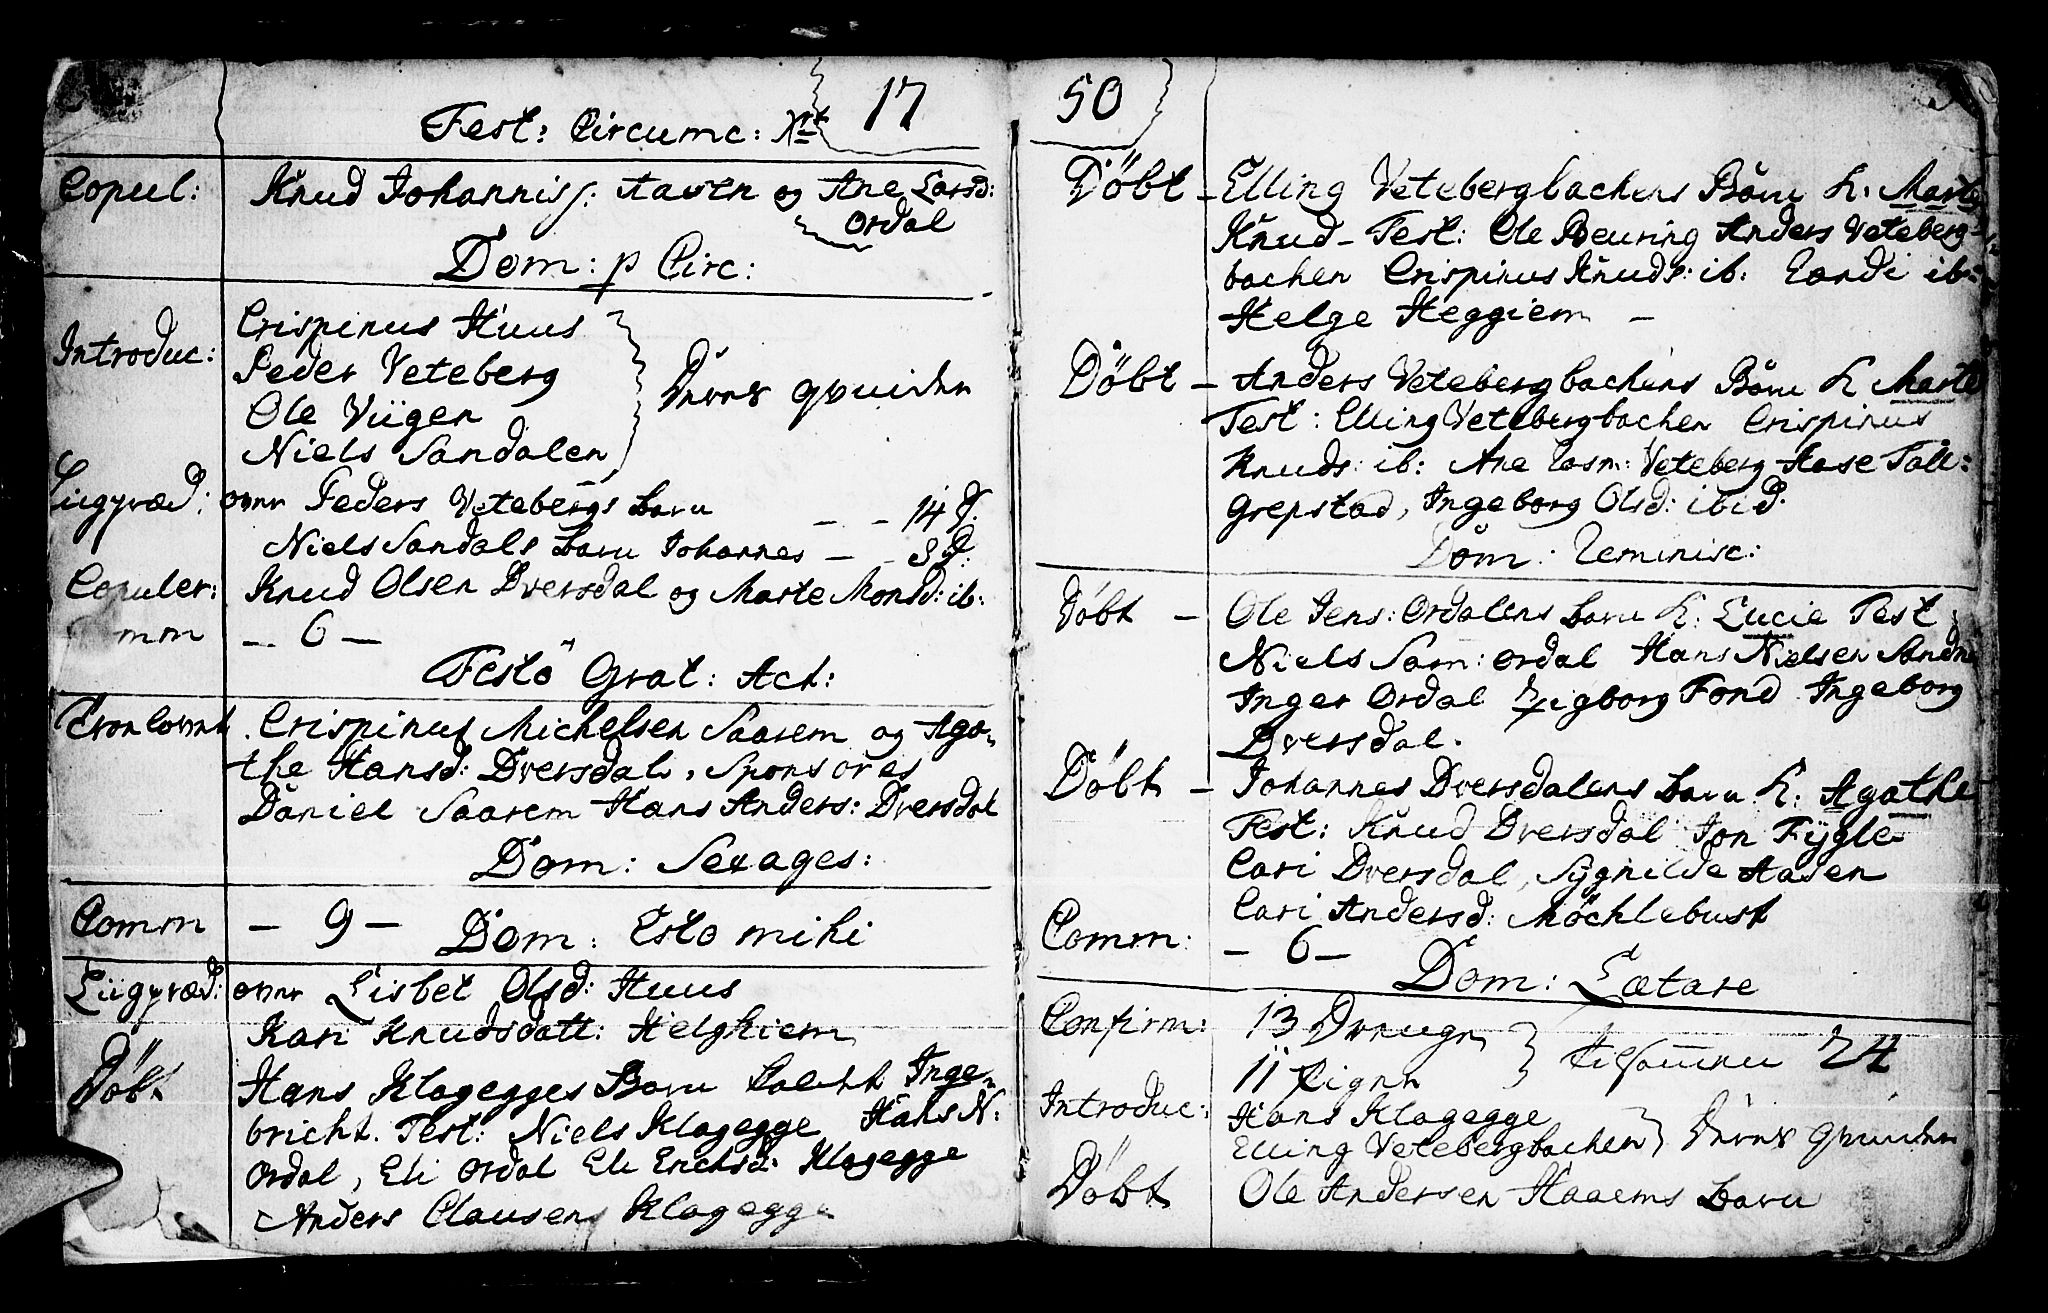 17
Fest: Circumc: Xti
Copul: Knud Johanniss: Aasen og Ane Larsd:
Ordal
Dom: p Circ:
Introduc: Crispinus Huus
Peder Veteberg
Ole Viigen
Niels Sandalen
Deres qvinder
Liigpræd: over Peders Vetebergs barn - - 14 d.
Niels Sandals barn Johannes - - 8 d:
Copuler: Knud Olsen Dversdal og Marte Monsd: ib:
Comm - 6 -
Festo Grat: Act:
Trolovet. Crispinus Michelsen Saarem og Aga-
the Hansd: Dversdal. Sponsores
Daniel Saarem Hans Anders: Dversdal
Dom: Sexages:
Comm - 9 - Dom: Esto mihi
Liigpræd: over Lisbet Olsd: Huus
Kari Knudsdatt: Helghiem
Döbt Hans Klageggges Barn kaldt Inge-
bricht. Test: Niels Klagegge Hans N:
Ordal, Eli Ordal Eli Erichsd: Klagegge
Anders Clausen Klagegge
50
Döbt - Elling Vetebergbachens Börn k: Marte
Knud - Test: Ole Beuring Anders Veteberg-
bachen Crispinus Knuds: ib: Randi ib:
Helge Heggiem -
Döbt - Anders Vetebergbachens Börn k Marte
Test: Elling Vetebergbachen Crispinus
Knuds: ib: Ane Rasm: Veteberg Aase Toll:
Grepstad, Ingeborg Olsd: ibid.
Dom: Reminisc:
Döbt - Ole Jens: Ordalens barn k: Lucie Test:
Niels Sam: Ordal Hans Nielsen Sandn
Inger Ordal Zigborg Fond Ingeborg
Dversdal.
Döbt - Johannes Dversdalens barn k: Agathe
Test: Knud Dversdal Jon Fÿgle
Cari Dversdal, Sÿgnilde Aasen
Cari Andersd: Möchlebust
Comm: - 6 -
Dom: Lætare
Confirm: 13 Drenge
11 Piger
tilsammen 24
Introduc: Hans Klagegge
Elling Vetebergbachen Deres qvinder
Döbt Ole Andersen Haaems barn